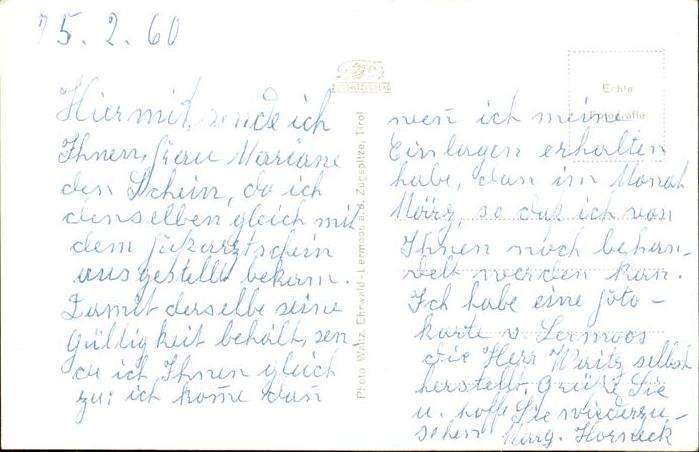 15. 2. 60
Hiermit sende ich
Ihnen, Frau Mariane
den Schein, da ich
denselben gleich mit
dem
ausgestellt bekam.
Damit derselbe seine
Gültigkeit behält, sen
de ich Ihnen gleich
zu: ich kome dan
Photo Waitz, Ehrwald-Lermoos a. d. Zugspitze, Tirol
Echte
Fotografie
wen̄ ich meine
Einlagen erhalten
habe, dan im Monat
März, so daß ich von
Ihnen noch behan-
delt werden kan.
Ich habe eine Foto-
karte v. Lermoos
die Herr Waitz selbst
herstellt. Grüße Sie
u. hoffe Sie wiederzu-
sehen Marg. Horneck